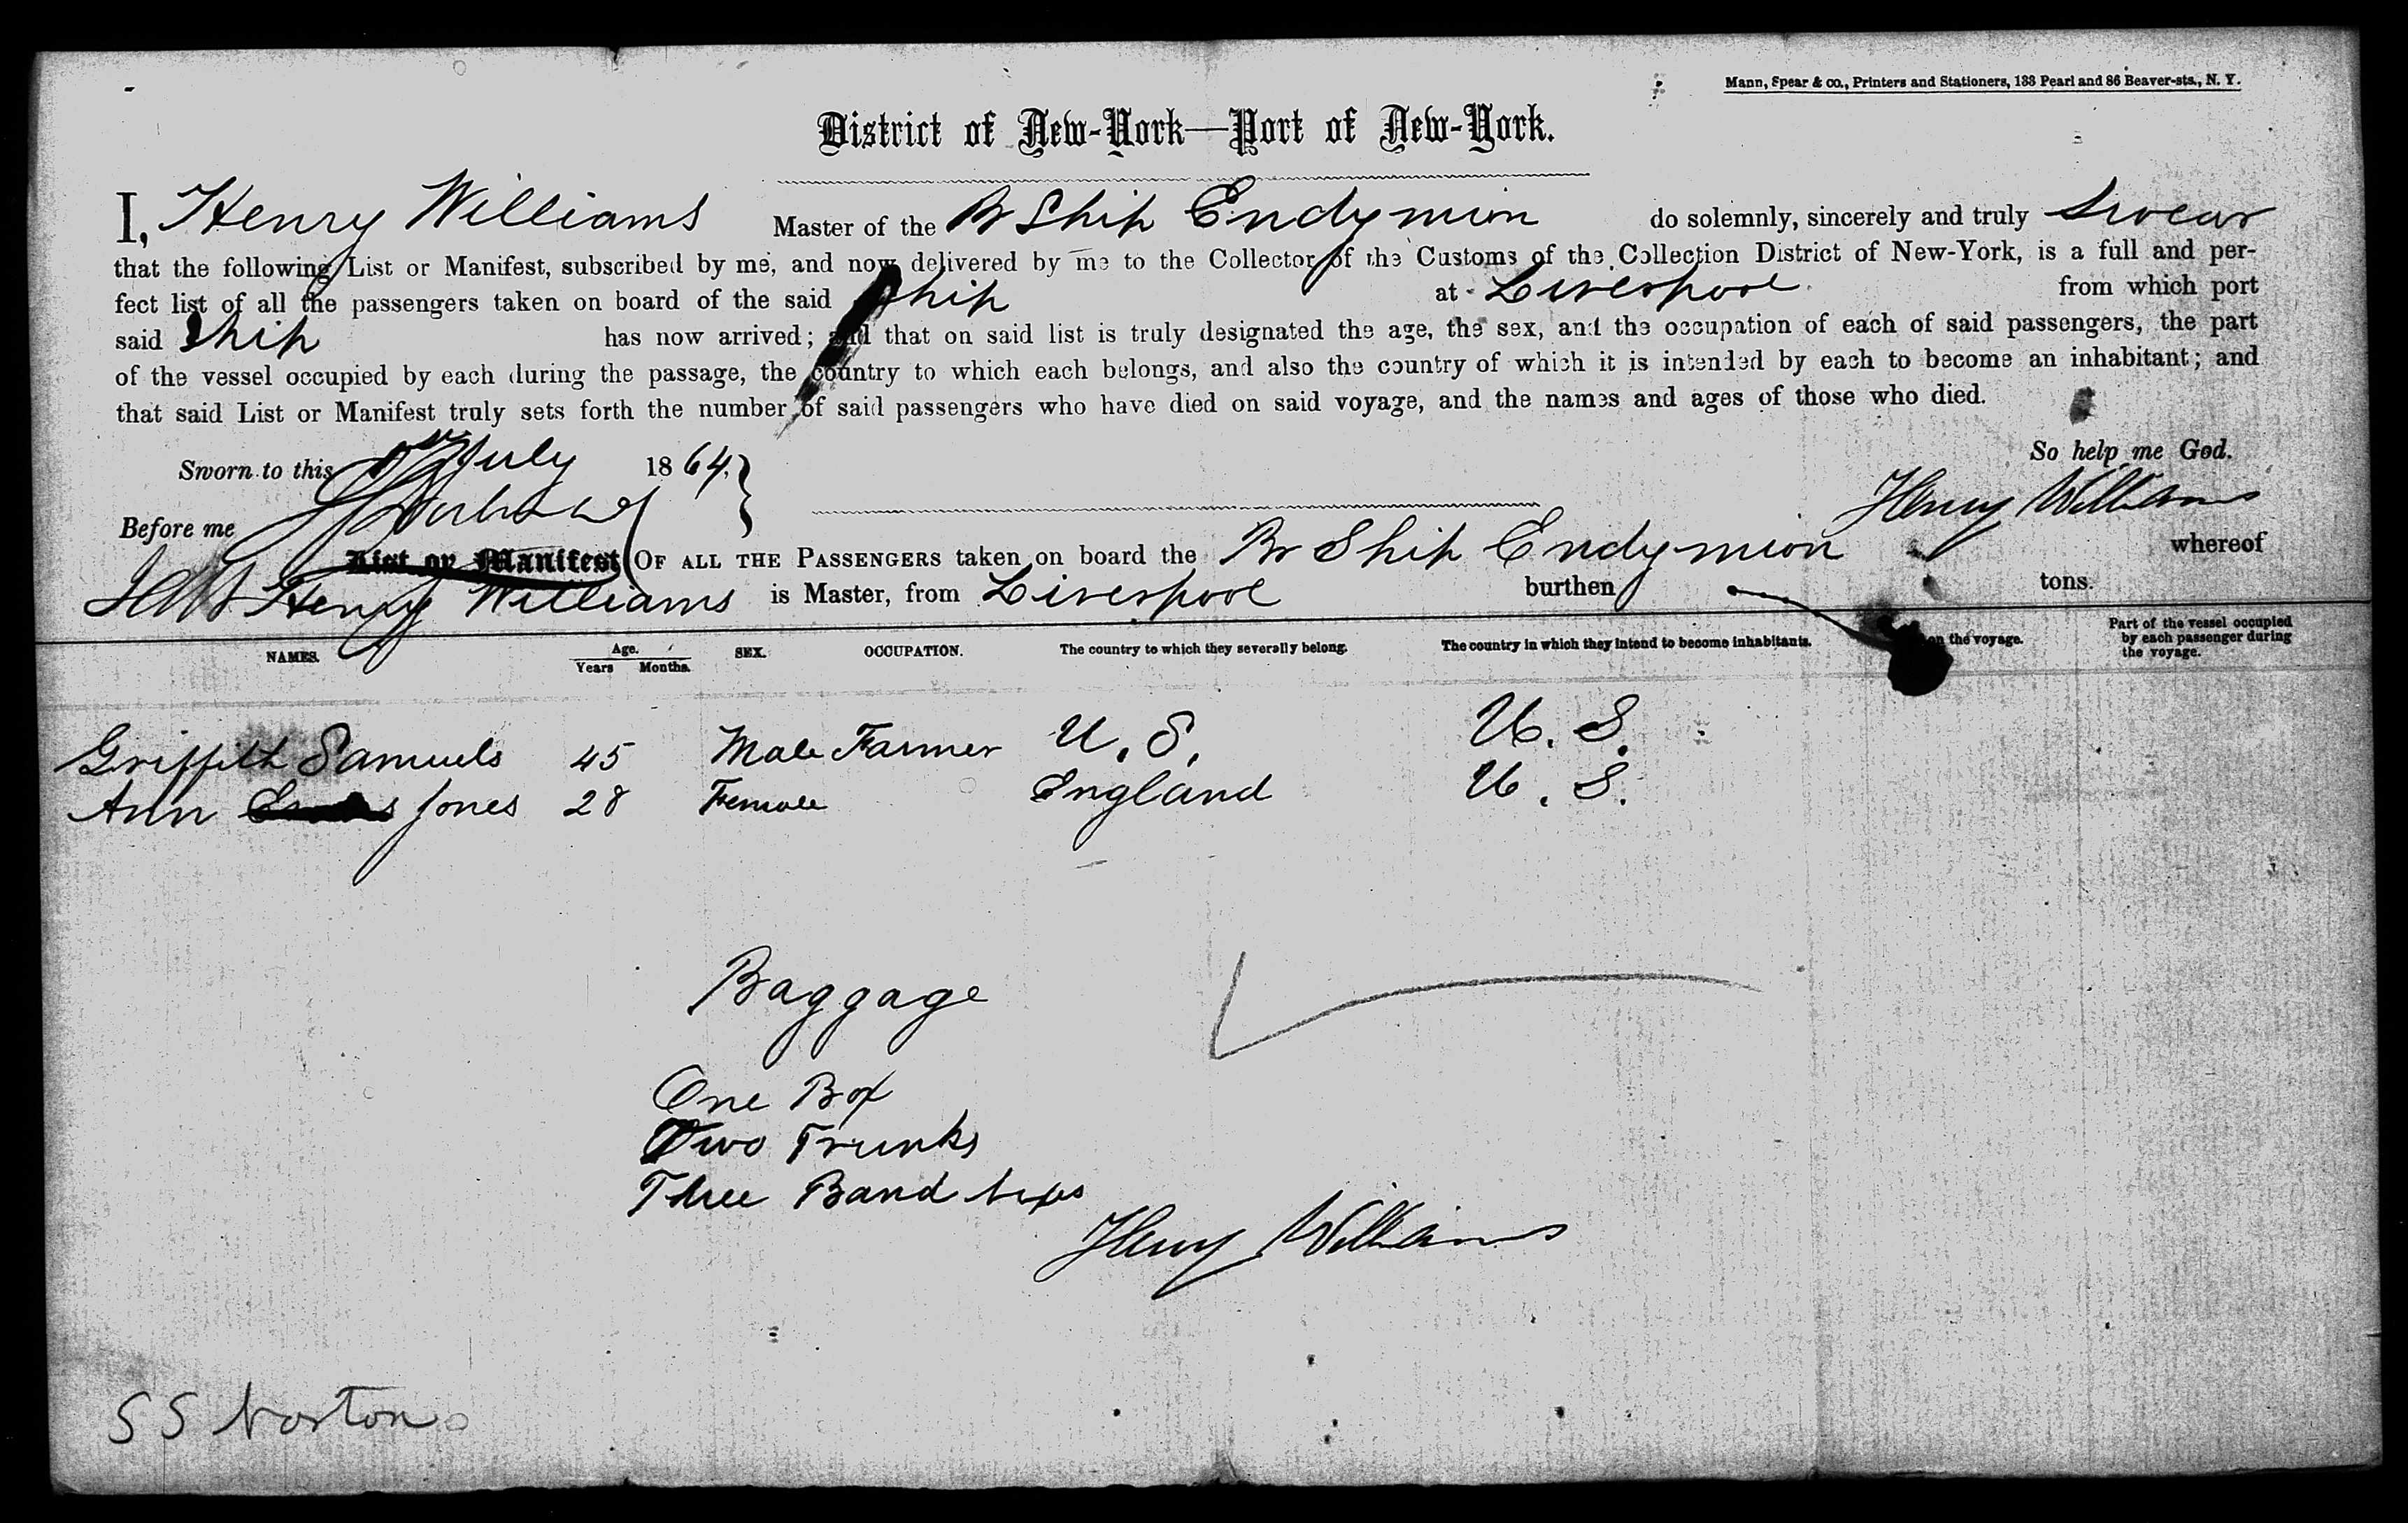 Mann, Spear & co., Printers and Stationers, 133 Pearl and 86 Beaver-sts., N. Y.
District of New-York—Port of New-York.
I, Henry Williams Master of the Br Ship Endymion do solemnly, sincerely and truly Swear
that the following List or Manifest, subscribed by me, and now delivered by me to the Collector of the Customs of the Collection District of New-York, is a full and per-
fect list of all the passengers taken on board of the said Ship at Liverpool from which port
said Ship has now arrived; and that on said list is truly designated the age, the sex, and the occupation of each of said passengers, the part
of the vessel occupied by each during the passage, the country to which each belongs, and also the country of which it is intended by each to become an inhabitant; and
that said List or Manifest truly sets forth the number of said passengers who have died on said voyage, and the names and ages of those who died.
Sworn to this July 1864. So help me God.
Before me Henry Williams
List or Manifest OF ALL THE PASSENGERS taken on board the Br Ship Endymion whereof
Henry Williams is Master, from Liverpool burthen tons.
NAMES. Age. Years Months. SEX. OCCUPATION. The country to which they severally belong. The country in which they intend to become inhabitants. on the voyage. Part of the vessel occupied by each passenger during the voyage.
Griffith Samuels 45 Male Farmer U. S. U. S.
Ann Jones 28 Female England U. S.
Baggage
One Box
Two Trunks
Three Band boxes
Henry Williams
S S Norton